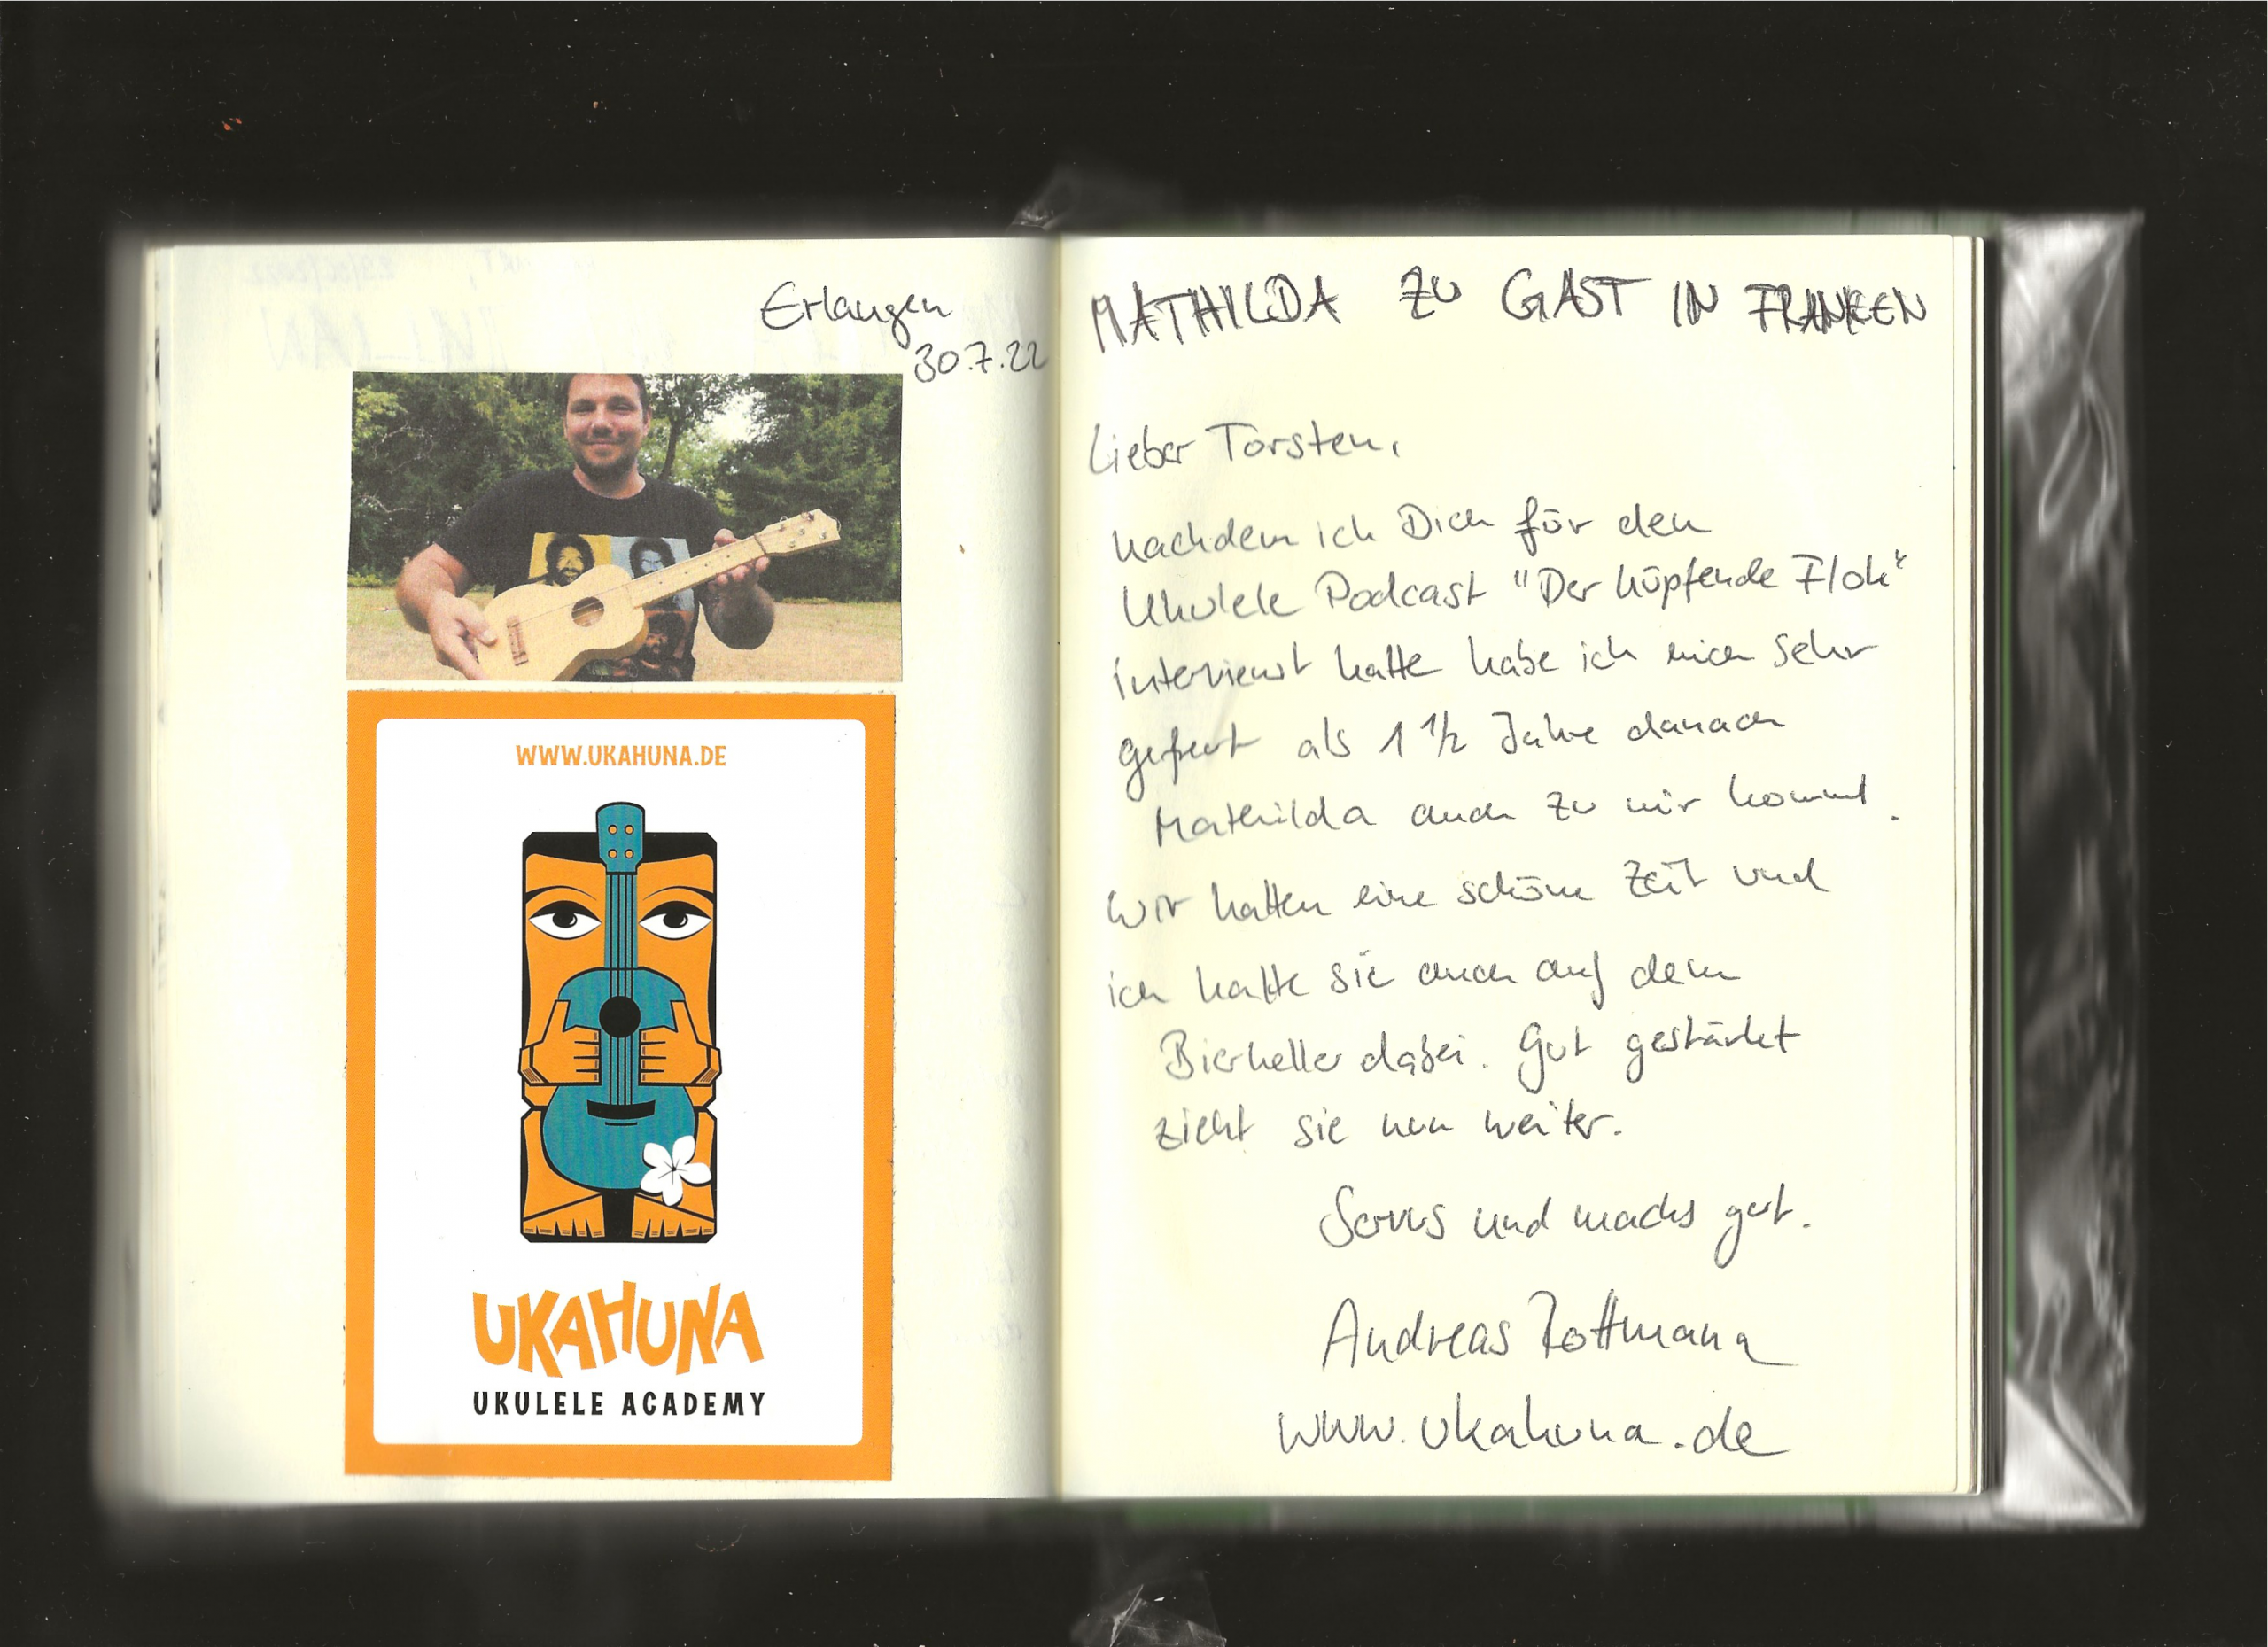 Erlangen
30.7.22
WWW.UKAHUNA.DE
UKAHUNA
UKULELE ACADEMY
MATHILDA ZU GAST IN FRANKEN
Lieber Torsten,
nachdem ich Dich für den
Ukulele Podcast "Der hüpfende Floh"
interviewt hatte habe ich mich sehr
gefreut als 1 1/2 Jahre danach
Mathilda auch zu mir kommt.
Wir hatten eine schöne Zeit und
ich hatte sie auch auf dem
Bierkeller dabei. Gut gestärkt
zieht sie nun weiter.
Servus und machs gut.
Andreas
www.ukahuna.de